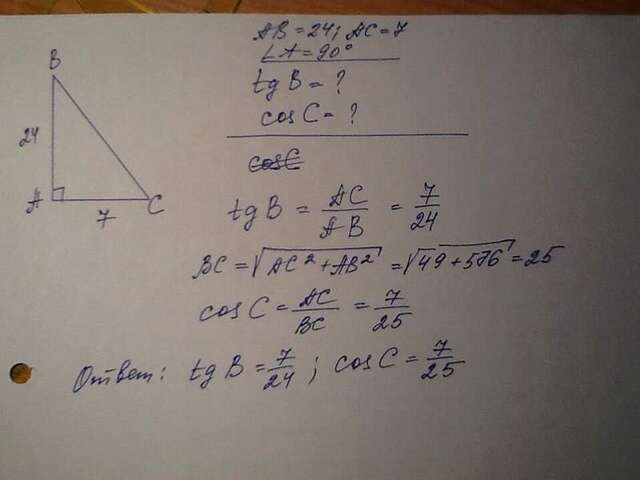 AB=24; AC=7
∠A=90°
tg B = ?
cos C = ?
B
24
A
7
C
cosC
tg B = AC/AB = 7/24
BC = √(AC²+AB²) = √(49+576) = 25
cos C = AC/BC = 7/25
Ответ: tg B = 7/24 ; cos C = 7/25